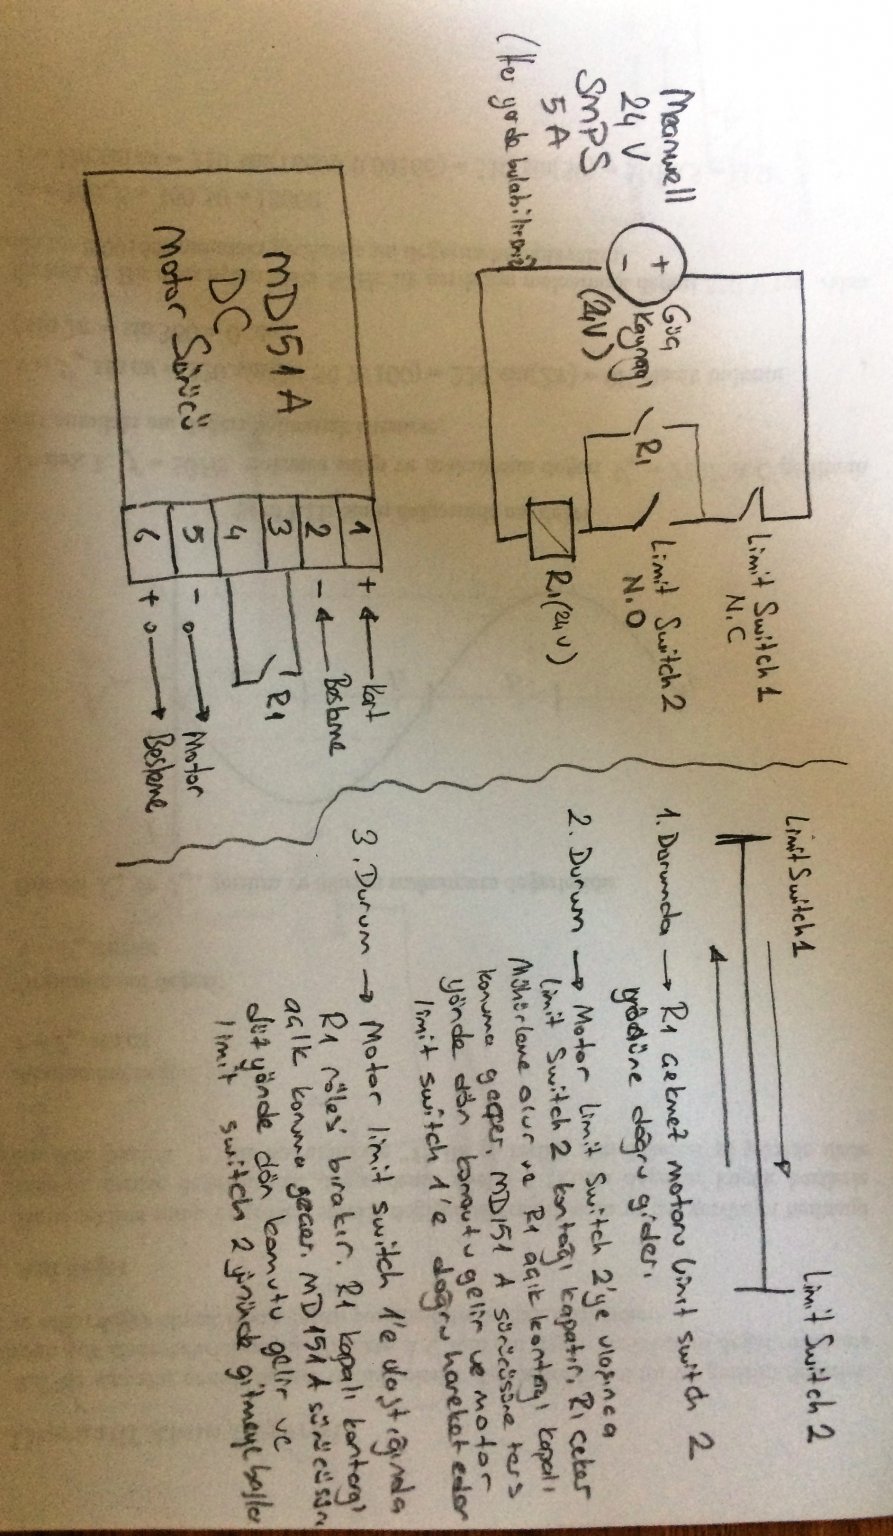 Meanwell
24 V
SMPS
5 A
(Her yerde bulabilirsiniz)
+
-
Güç
Kaynağı
(24V)
R1
Limit Switch 1
N.C
Limit Switch 2
N.O
R1 (24V)
MD151A
DC
Motor Sürücü
1
2
3
4
5
6
+ Kart
- Besleme
R1
- Motor
+ Besleme
Limit Switch 1
Limit Switch 2
1. Durumda → R1 çekmez motoru limit switch 2
yönüne doğru gider.
2. Durum → Motor Limit Switch 2'ye ulaşınca
limit Switch 2 kontağı kapatır, R1 çeker
Mühürleme olur ve R1 açık kontağı kapalı
konuma geçer. MD151 A sürücüsüne ters
yönde dön komutu gelir ve motor
limit switch 1'e doğru hareket eder
3. Durum → Motor limit switch 1'e ulaştığında
R1 rölesi bırakır. R1 kapalı kontağı
açık konuma geçer. MD151A sürücüsün
düz yönde dön komutu gelir ve
limit switch 2 yönünde gitmeye başlar